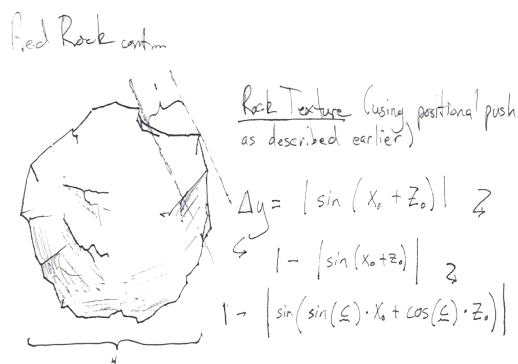 Rock contin
Rock Texture (using positional push
as described earlier)
Δy = |sin(X₀ + Z₀)|
1 - |sin(X₀+Z₀)|
1 - |sin(sin(c)·X₀ + cos(c)·Z₀)|